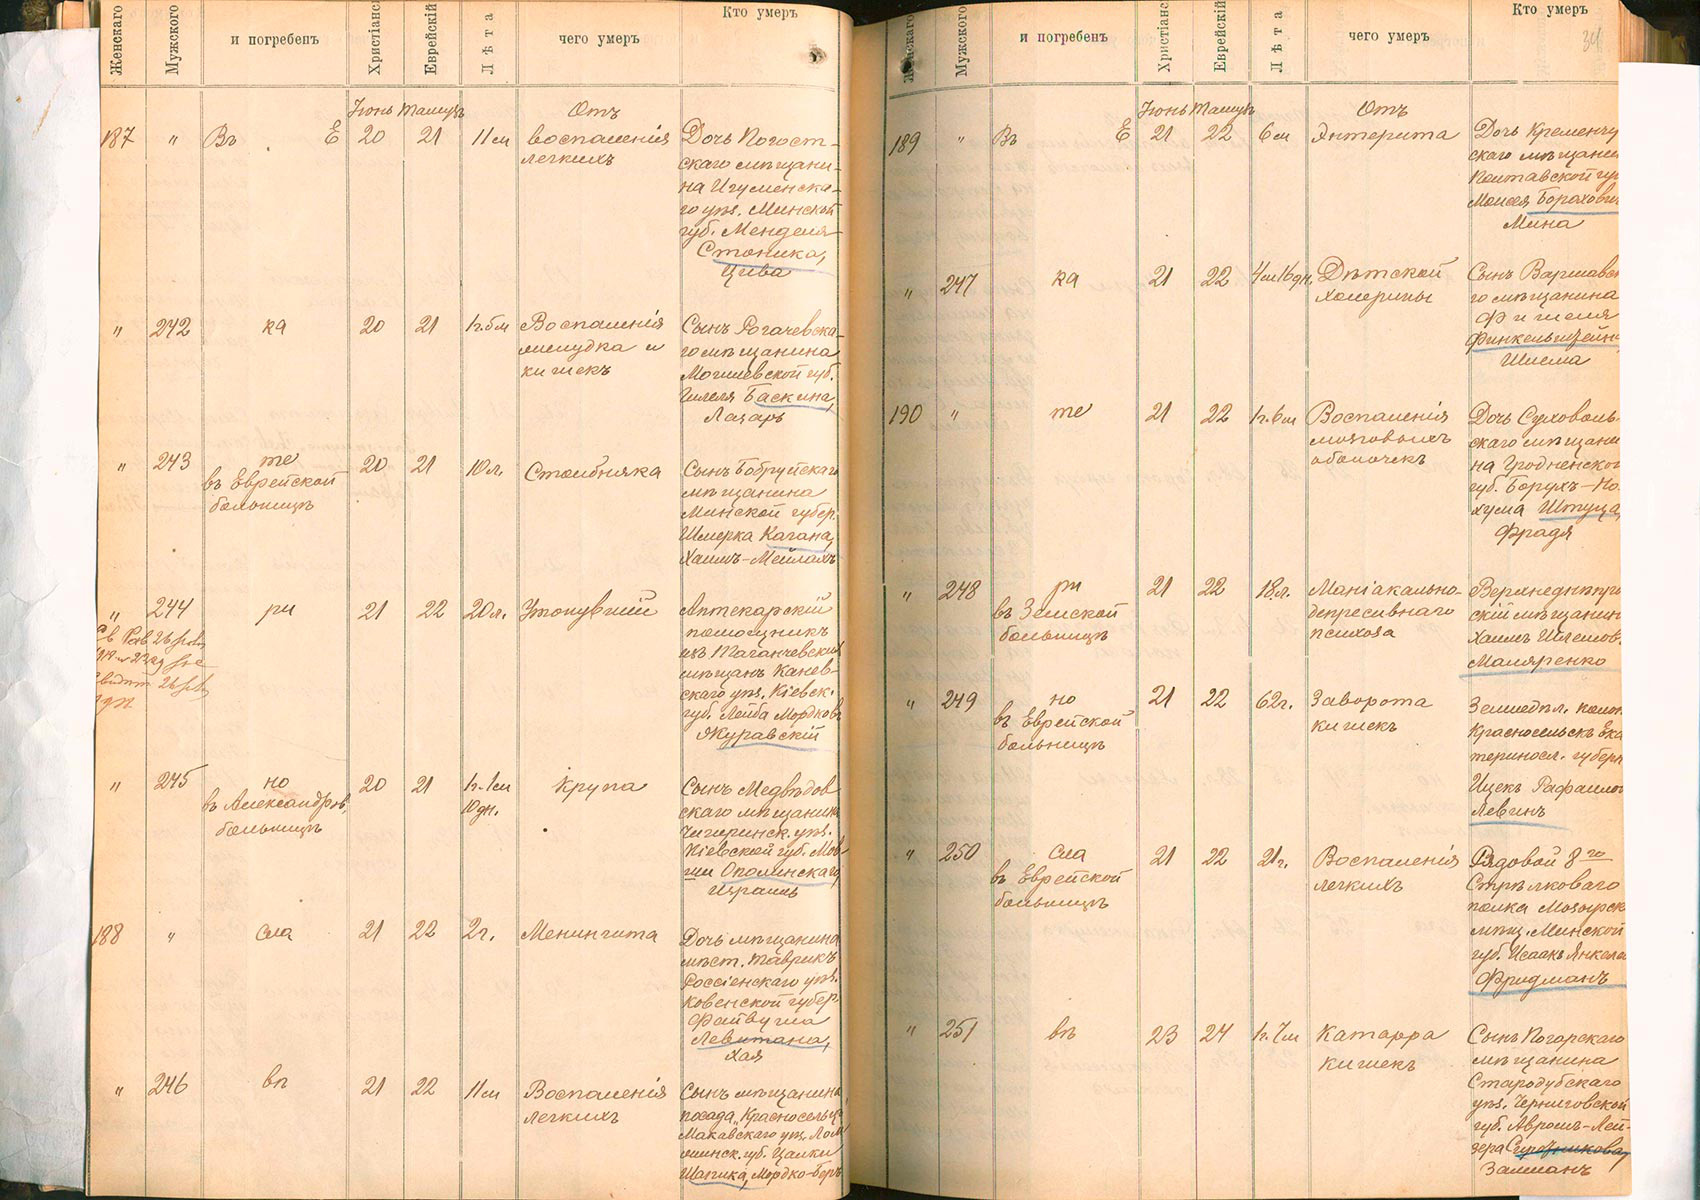 Женскаго
Мужского
и погребенъ
Христіанс
Еврейскій
Лѣта
чего умеръ
Кто умеръ
Іюнь Тамузъ
Отъ
187 " Въ Е 20 21 11 м воспаленія
легкихъ
Дочь Погост-
скаго мѣщани-
на Игуменска-
го уѣз. Минской
губ. Менделя
Стоника,
Цива
" 242 ка 20 21 1г. 5м Воспаленія
желудка и
кишекъ
Сынъ Рогачевска-
го мѣщанина
Могилевской губ.
Гилеля Баскина,
Лазарь
" 243 те 20 21 10 л. Столбняка
въ Еврейской
больницѣ
Сынъ Бобруйскаго
мѣщанина
Минской губер.
Шмерка Кагана,
Хаимъ-Мейлахъ
" 244 ри 21 22 20 л. Утонувшій
Аптекарскій
помощникъ
изъ Таганчевскихъ
мѣщанъ Канев-
скаго уѣз. Кіевск.
губ. Лейба Мордков
Журавскій
" 245 но 20 21 1г. 1м Крупа
въ Александров.
больницѣ
10 дн.
Сынъ Медвѣдов
скаго мѣщанина
Чигиринск. уѣз.
Кіевской губ. Мов
ши Ополинскаго,
Израиль
188 " сла 21 22 2 г. Менингита
Дочь мѣщанина
мѣст. Таврикъ
Россіенскаго уѣз.
Ковенской губер.
Файвуша
Левитана,
Хая
" 246 вѣ 21 22 11 м Воспаленія
легкихъ
Сынъ мѣщанина
посада "Красносельц"
Маковскаго уѣз. Лом
жинск. губ. Цалки
Шапика, Мордко-Беръ
34
Женскаго
Мужского
и погребенъ
Христіанс
Еврейскій
Лѣта
чего умеръ
Кто умеръ
Іюнь Тамузъ
Отъ
189 " Въ Е 21 22 6 м Энтерита
Дочь Кременчуг
скаго мѣщанин
Полтавской гу
Моисея Борахович
Мина
" 247 ка 21 22 4м 16 дн. Дѣтской
холерины
Сынъ Варшавск
го мѣщанина
Фишеля
Финкельштейн
Шлема
190 " те 21 22 1г. 6м Воспаленія
мозговыхъ
оболочекъ
Дочь Суховоль-
скаго мѣщани
на Гродненской
губ. Борухъ-Но-
хума Штуца,
Фрадя
" 248 ри 21 22 18 л. Маніакально-
въ Земской
больницѣ
депресивнаго
психоза
Верхнеднѣпро
скій мѣщанин
Хаимъ Шлемов.
Маляренко
" 249 но 21 22 62 г. Заворота
въ Еврейской
больницѣ
кишекъ
Земледѣл. колон.
Красносельскъ Ека
теринослав. губерн
Ицекъ Рафаилов
Левинъ
" 250 сла 21 22 21 г. Воспаленія
въ Еврейской
больницѣ
легкихъ
Рядовой 8го
Стрѣлковаго
полка Мозырск
мѣщ. Минской
губ. Исаакъ Янкелев
Фридманъ
" 251 вѣ 23 24 1г. 7м Катарра
кишекъ
Сынъ Погарскаго
мѣщанина
Стародубскаго
уѣз. Черниговской
губ. Авромъ-Лей-
зера
Залманъ